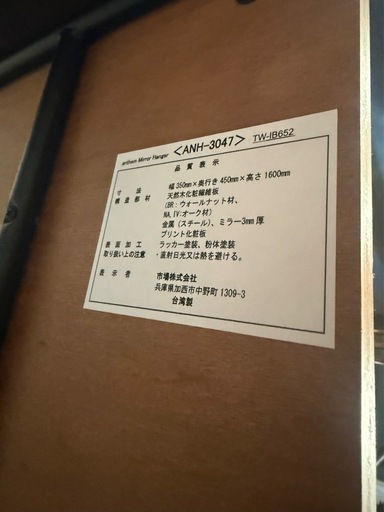 anthem Mirror Hanger <ANH-3047> TW-IB652
品質表示
寸法 幅350mm×奥行き450mm×高さ1600mm
構造部材 天然木化粧繊維板
(BR:ウォールナット材、
NA,IV:オーク材)
金属(スチール)、ミラー3mm厚
プリント化粧板
表面加工 ラッカー塗装、粉体塗装
取り扱い上の注意 ・直射日光又は熱を避ける。
表示者 市場株式会社
兵庫県加西市中野町1309-3
台湾製